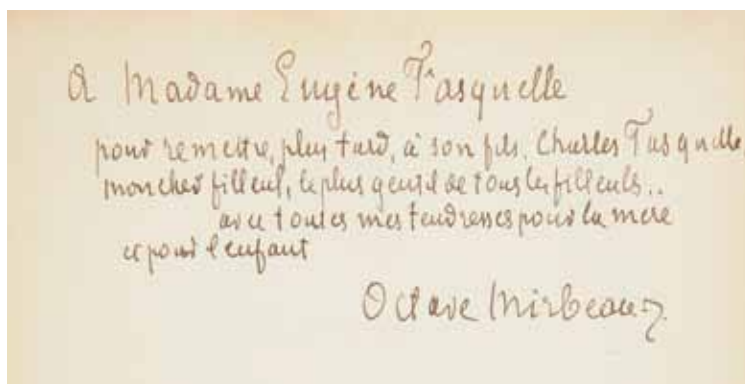 A Madame Eugène Fasquelle
pour remettre, plus tard, à son fils, Charles Fasquelle,
mon cher filleul, le plus gentil de tous les filleuls..
avec toutes mes tendresses pour la mère
et pour l'enfant
Octave Mirbeau